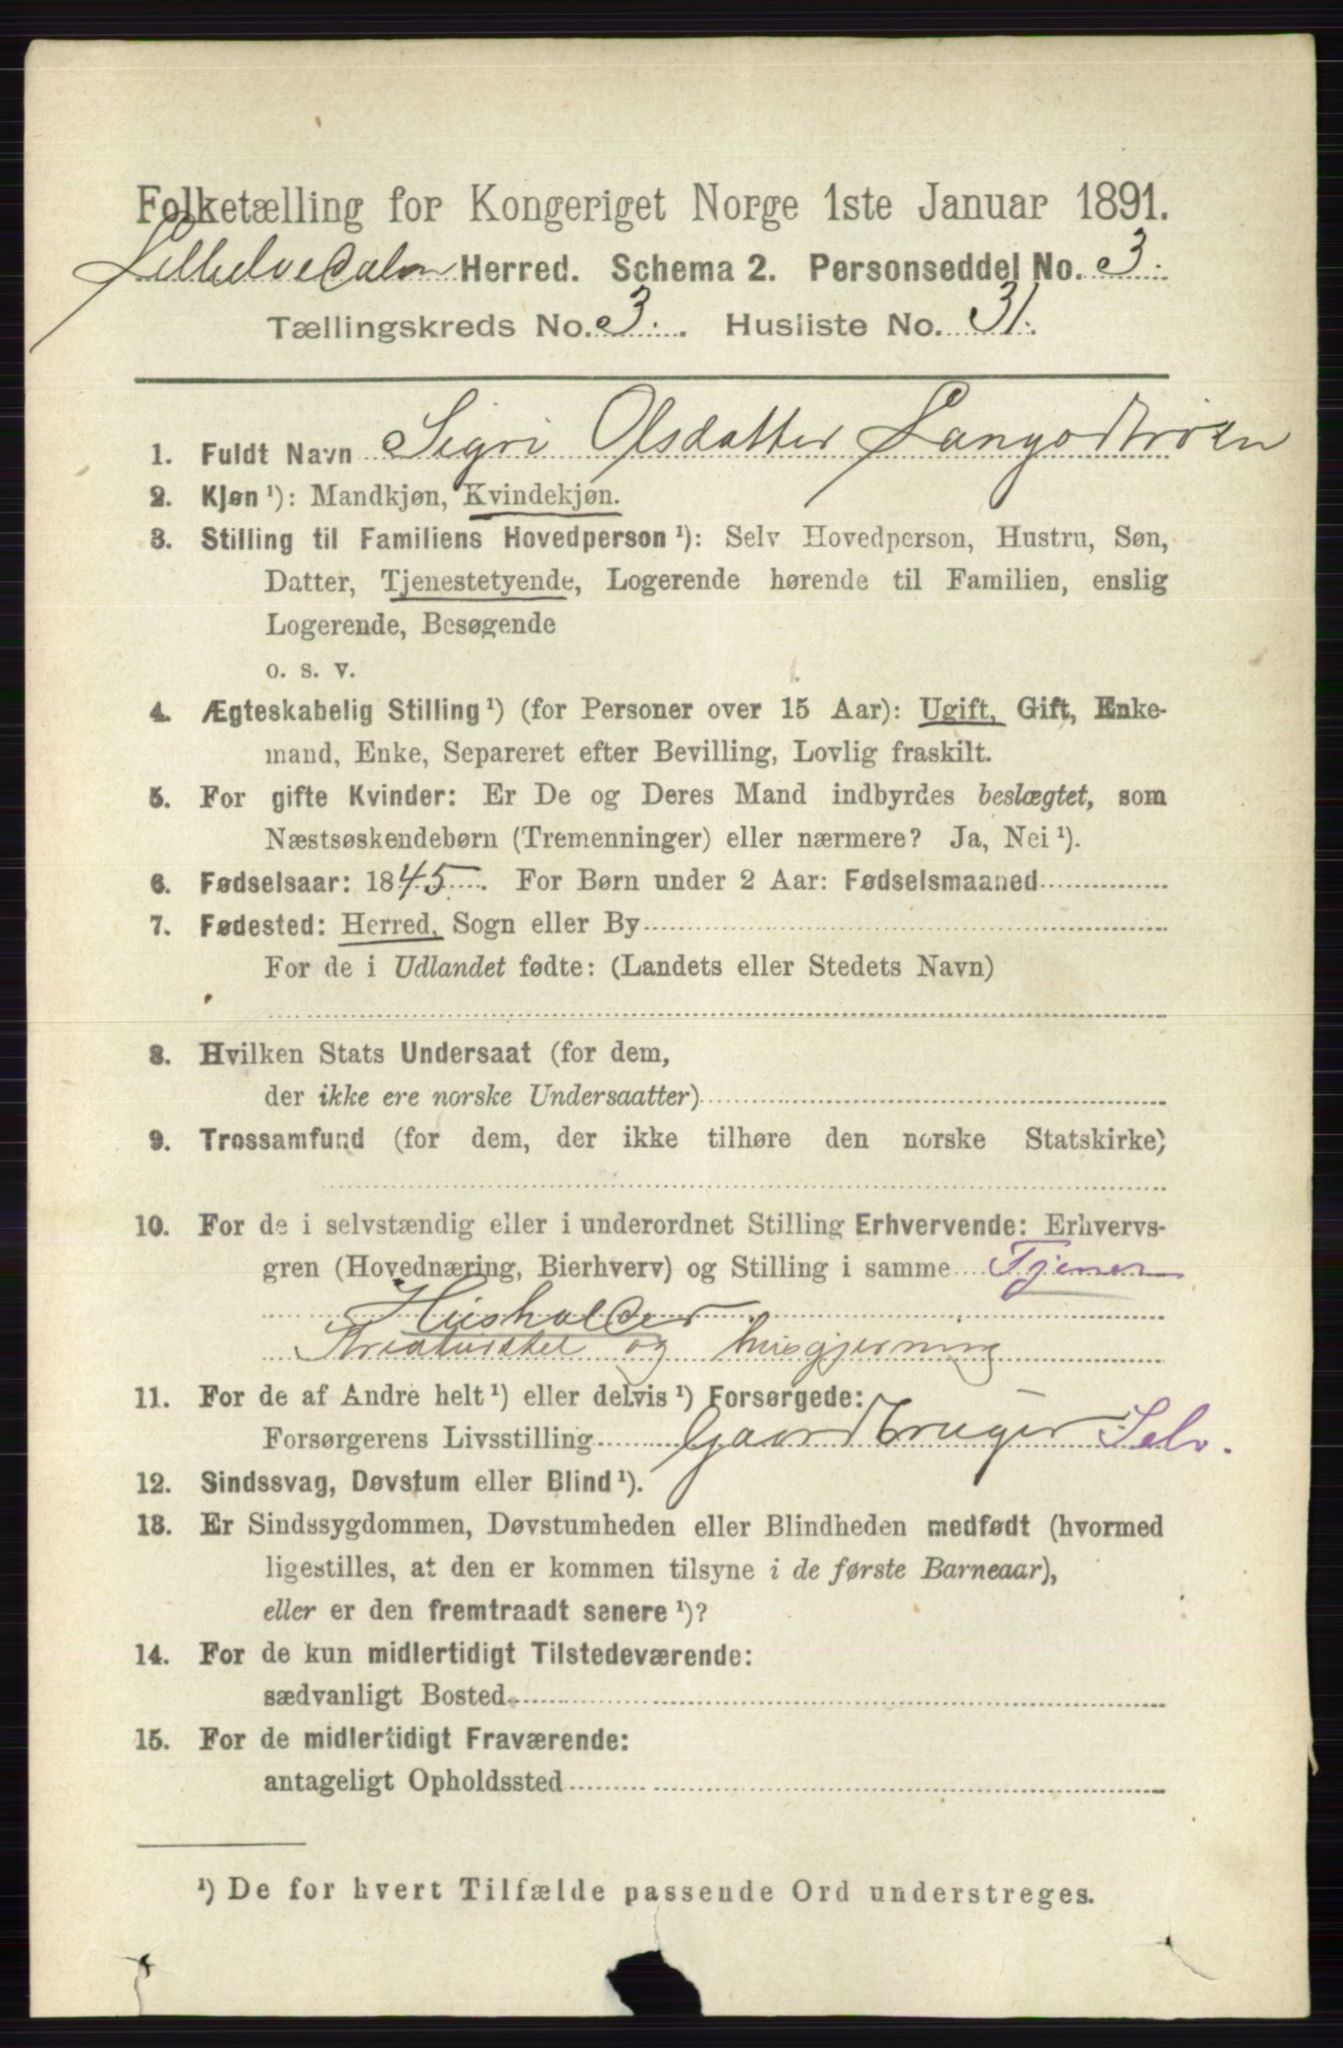 Folketælling for Kongeriget Norge 1ste Januar 1891.
Lilleelvedalen Herred. Schema 2. Personseddel No. 3.
Tællingskreds No. 3. Husliste No. 31.
1. Fuldt Navn Sigri Olsdatter
2. Kjøn ¹): Mandkjøn, Kvindekjøn.
3. Stilling til Familiens Hovedperson ¹): Selv Hovedperson, Hustru, Søn,
Datter, Tjenestetyende, Logerende hørende til Familien, enslig
Logerende, Besøgende
o. s. v.
4. Ægteskabelig Stilling ¹) (for Personer over 15 Aar): Ugift, Gift, Enke-
mand, Enke, Separeret efter Bevilling, Lovlig fraskilt.
5. For gifte Kvinder: Er De og Deres Mand indbyrdes beslægtet, som
Næstsøskendebørn (Tremenninger) eller nærmere? Ja, Nei ¹).
6. Fødselsaar: 1845. For Børn under 2 Aar: Fødselsmaaned
7. Fødested: Herred, Sogn eller By
For de i Udlandet fødte: (Landets eller Stedets Navn)
8. Hvilken Stats Undersaat (for dem,
der ikke ere norske Undersaatter)
9. Trossamfund (for dem, der ikke tilhøre den norske Statskirke)
10. For de i selvstændig eller i underordnet Stilling Erhvervende: Erhvervs-
gren (Hovednæring, Bierhverv) og Stilling i samme Tjener
Husholder
Kreaturstel og husgjerning
11. For de af Andre helt ¹) eller delvis ¹) Forsørgede:
Forsørgerens Livsstilling Gaardbruger Selv.
12. Sindssvag, Døvstum eller Blind ¹).
13. Er Sindssygdommen, Døvstumheden eller Blindheden medfødt (hvormed
ligestilles, at den er kommen tilsyne i de første Barneaar),
eller er den fremtraadt senere ¹)?
14. For de kun midlertidigt Tilstedeværende:
sædvanligt Bosted
15. For de midlertidigt Fraværende:
antageligt Opholdssted
¹) De for hvert Tilfælde passende Ord understreges.